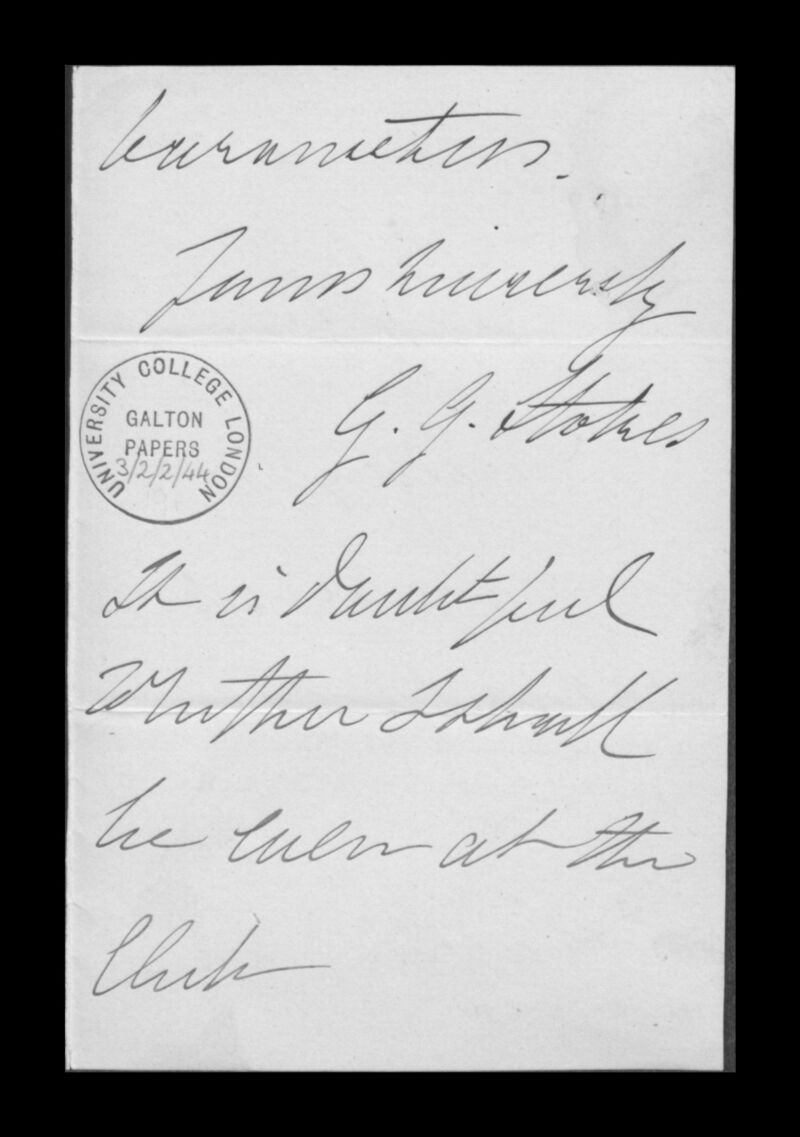 barometers.
Yours sincerely
G. G. Stokes
UNIVERSITY COLLEGE LONDON
GALTON
PAPERS
3/2/2/44
It is doubtful
whether I shall
be even at the
Club